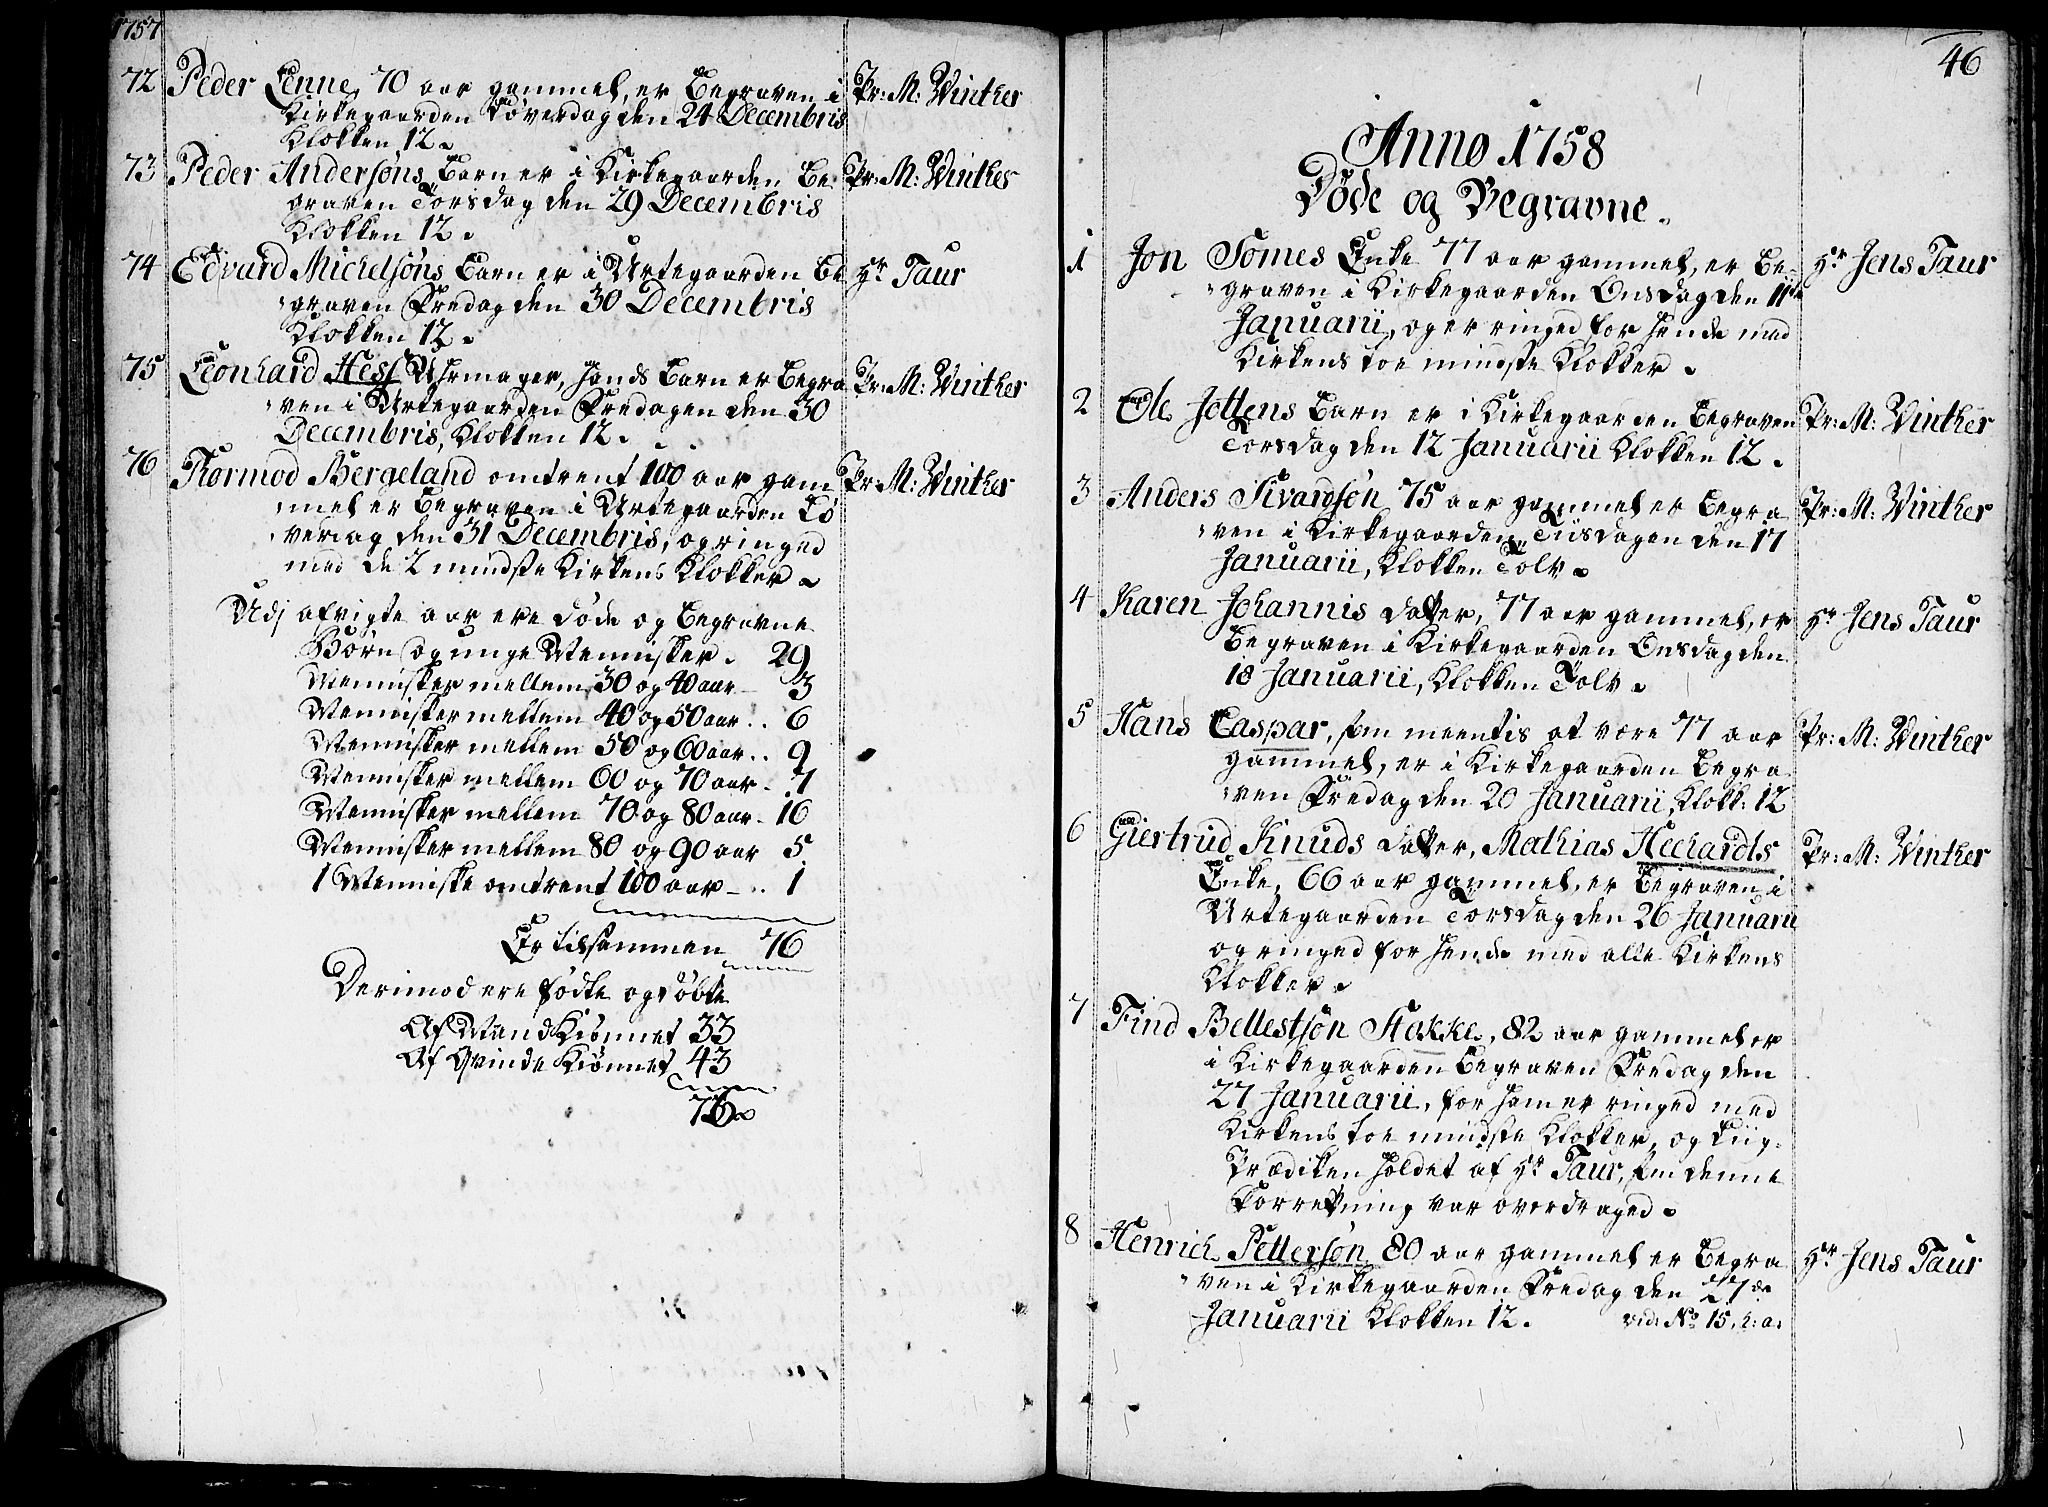 1757
72 Peder Lenne, 70 aar gammel, er Begraven i Pr: M: Vinther
Kirkegaarden Løverdag den 24 Decembris
Klokken 12.
73 Peder Andersøns Barn er i Kirkegaarden Be- Pr: M: Vinther
graven Torsdag den 29 Decembris
Klokken 12.
74 Edvard Michelsøns Barn er i Urtegaarden Be Hr Taur
graven Fredag den 30 Decembris
Klokken 12.
75 Leonhard Hess, Uhrmager, Hands Barn er Begra Pr: M: Vinther
ven i Urtegaarden Fredagen den 30
Decembris, Klokken 12.
76 Tormod Bergeland omtrent 100 aar gam Pr: M: Vinther
mel er Begraven i Urtegaarden Lø
verdag den 31 Decembris, og ringed
med de 2 mindste Kirkens Klokker.
Udj afvigte aar ere døde og Begravne
Børn og unge Mennisker. 29
Mennisker mellem 30 og 40 aar - 3
Mennisker mellem 40 og 50 aar.. 6
Mennisker mellem 50 og 60 aar.. 9
Mennisker mellem 60 og 70 aar - 7
Mennisker mellem 70 og 80 aar - 16
Mennisker mellem 80 og 90 aar 5
1 Menniske omtrent 100 aar -.. 1
Er tilsammen 76
Derimod ere fødte og døbte
Af MandKiønnet 33
Af QvindeKiønnet 43
76
46
Anno 1758
Døde og Begravne.
1 Jon Somes Enke 77 aar gammel, er Be- Hr. Jens Taur
graven i Kirkegaarden Onsdag den 11te
Januarii, og er ringed for Hende med
Kirkens toe mindste Klokker.
2 Ole Jottens Barn er i Kirkegaarden Begraven Pr: M: Vinther
Torsdag den 12 Januarii Klokken 12.
3 Anders Sivardsøn 75 aar gammel er Begra Pr: M: Vinther
ven i Kirkegaarden Tiisdagen den 17
Januarii, Klokken Tolv.
4 Karen Johannis datter, 77 aar gammel, er Hr Jens Taur
Begraven i Kirkegaarden Onsdag den
18 Januarii, Klokken Tolv.
5 Hans Caspar, som meentis at være 77 aar Pr: M: Vinther
gammel, er i Kirkegaarden Begra
ven Fredag den 20 Januarii, Klokk: 12
6 Giertrud Knuds datter, Mathias Hechardts Pr: M: Vinther
Enke, 66 aar gammel, er Begraven i
Urtegaarden Torsdag den 26 Januarii
og ringed for Hende med alle Kirkens
Klokker.
7 Find Bellestsøn Stakke, 82 aar gammel er
i Kirkegaarden Begraven Fredag den
27 Januarii, for Ham er ringed med
Kirkens toe mindste Klokker, og Liig-
Prædiken Holdet af Hr Taur, som denne
Forretning var overdraged.
8 Henrich Pettersøn 80 aar gammel er Begra Hr Jens Taur
ven i Kirkegaarden Fredag den 27de
Januarii Klokken 12. vid: No 15. h: a: